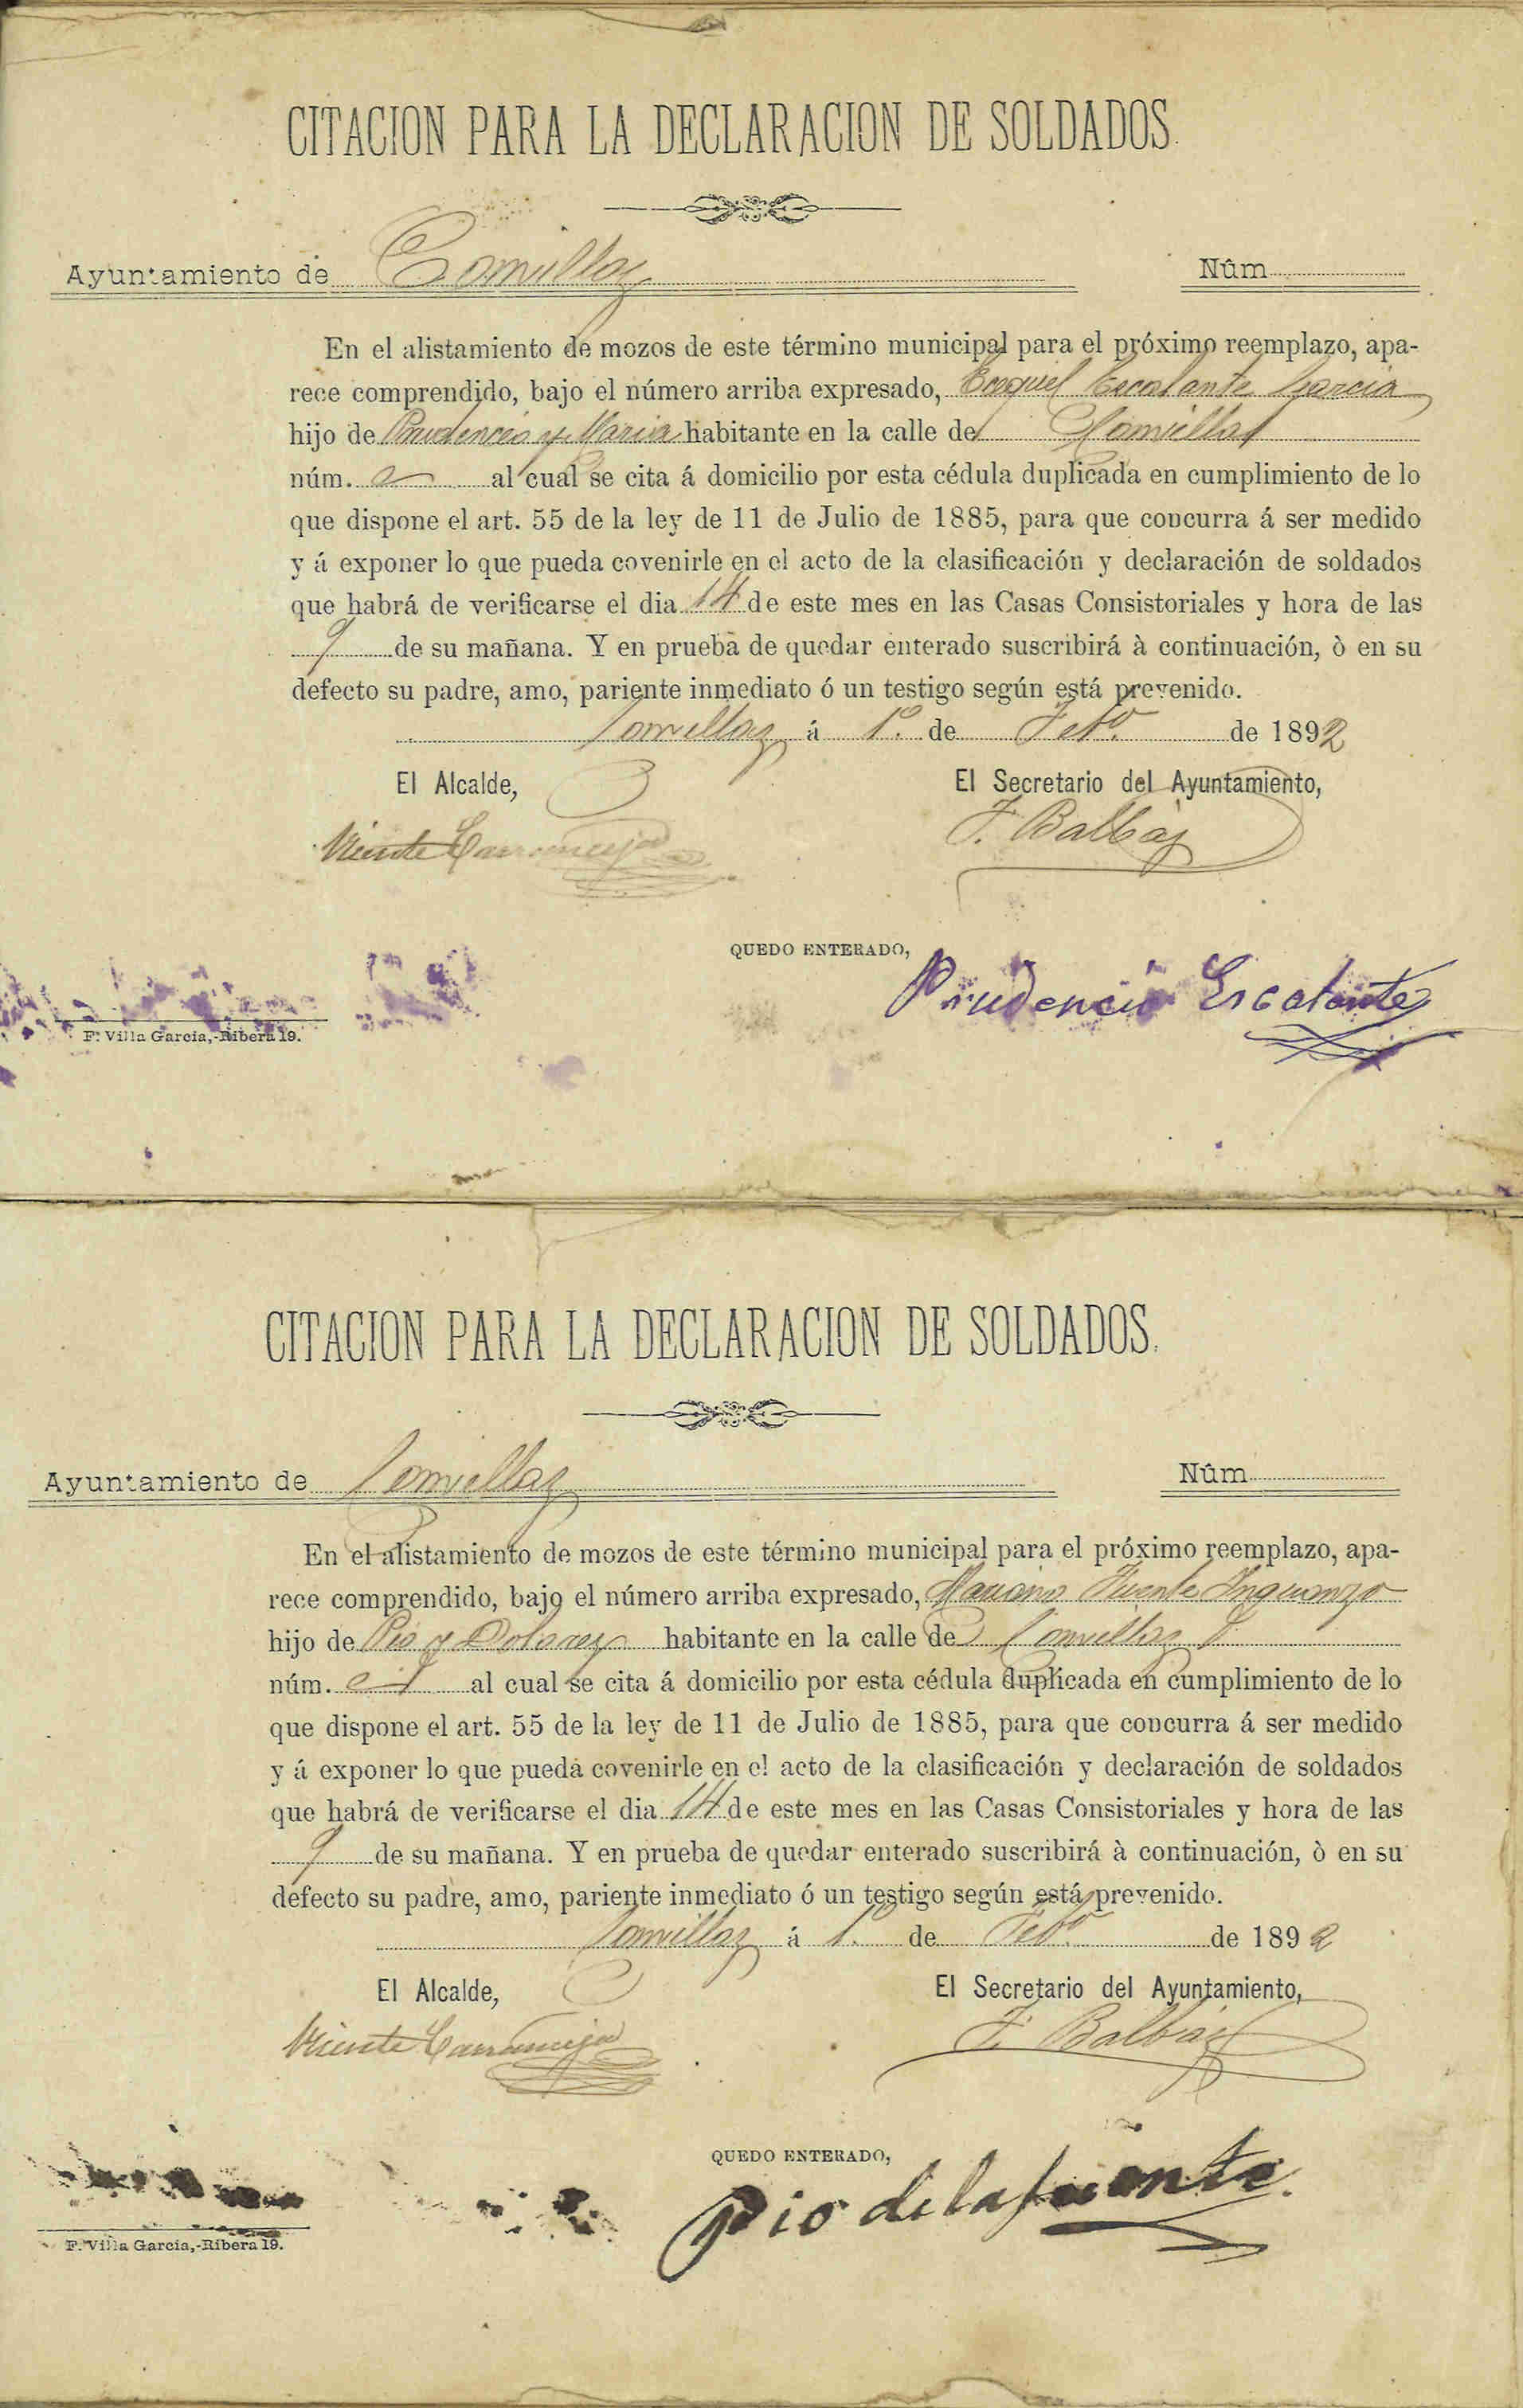 CITACION PARA LA DECLARACION DE SOLDADOS.
Ayuntamiento de Comillas Núm.
En el alistamiento de mozos de este término municipal para el próximo reemplazo, apa-
rece comprendido, bajo el número arriba expresado, Ecequiel Escalante Garcia
hijo de Prudencio y Maria habitante en la calle de Comillas
núm. al cual se cita á domicilio por esta cédula duplicada en cumplimiento de lo
que dispone el art. 55 de la ley de 11 de Julio de 1885, para que concurra á ser medido
y á exponer lo que pueda covenirle en el acto de la clasificación y declaración de soldados
que habrá de verificarse el dia 14 de este mes en las Casas Consistoriales y hora de las
9 de su mañana. Y en prueba de quedar enterado suscribirá à continuación, ò en su
defecto su padre, amo, pariente inmediato ó un testigo según está prevenido.
Comillas á 1º de Febº de 1892
El Alcalde, El Secretario del Ayuntamiento,
Vicente F. Balbas
QUEDO ENTERADO,
Prudencio Escalante
F. Villa Garcia,-Ribera 19.
CITACION PARA LA DECLARACION DE SOLDADOS.
Ayuntamiento de Comillas Núm.
En el alistamiento de mozos de este término municipal para el próximo reemplazo, apa-
rece comprendido, bajo el número arriba expresado, Mariano Fuente Inguanzo
hijo de Pio y Dolores habitante en la calle de Comillas
núm. al cual se cita á domicilio por esta cédula duplicada en cumplimiento de lo
que dispone el art. 55 de la ley de 11 de Julio de 1885, para que concurra á ser medido
y á exponer lo que pueda covenirle en el acto de la clasificación y declaración de soldados
que habrá de verificarse el dia 14 de este mes en las Casas Consistoriales y hora de las
9 de su mañana. Y en prueba de quedar enterado suscribirá à continuación, ò en su
defecto su padre, amo, pariente inmediato ó un testigo según está prevenido.
Comillas á 1º de Febº de 1892
El Alcalde, El Secretario del Ayuntamiento,
Vicente F. Balbas
QUEDO ENTERADO,
Pio de la fuente
F. Villa Garcia,-Ribera 19.